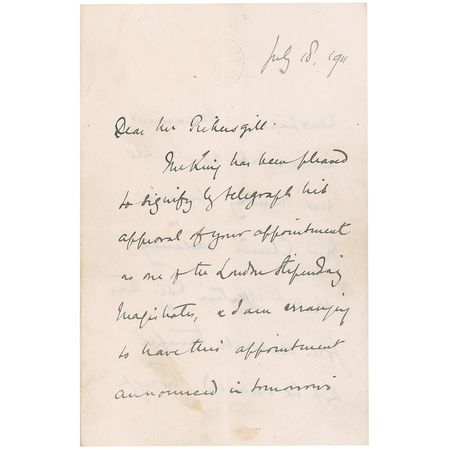 July 18. 1911
Dear Mr Pickersgill.
The King has been pleased
to signify by telegraph his
approval of your appointment
as one of the London Stipendiary
Magistrates, & I am arranging
to have this appointment
announced in tomorrows